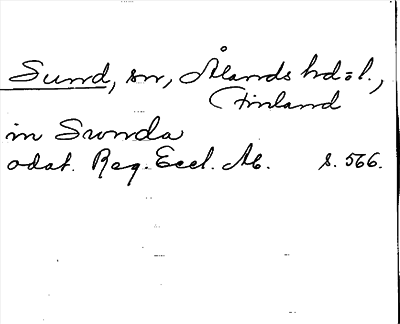 Sund, sn, Ålands hd o l.,
Finland
in Swnda
odat. Reg. Eccl. Ab. s. 566.